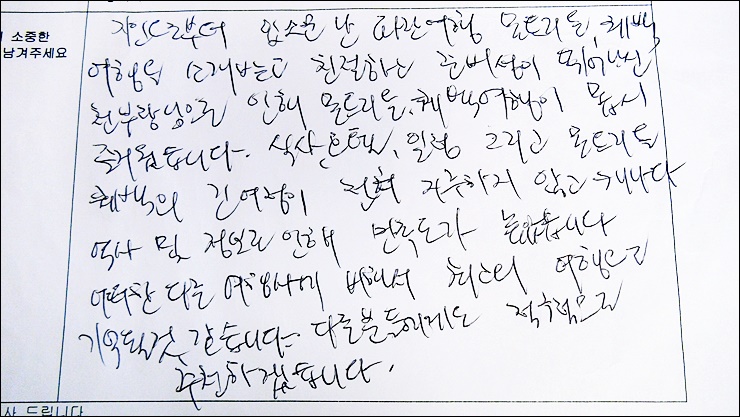 소중한
남겨주세요
지인으로부터 입소문 난 파란여행 몬트리올, 퀘백
여행을 소개받고 친절하고 준비성이 뛰어나신
천부장님으로 인해 몬트리올, 퀘백여행이 몹시
즐거웠습니다. 식사, 호텔, 일정 그리고 몬트리올
퀘백의 긴여정이 전혀 지루하지 않고 캐나다
역사 및 정보로 인해 만족도가 높았습니다
어떠한 다른 여행사에 비해서 최고의 여행으로
기억될것 같습니다. 다른분들에게도 적극적으로
추천하겠습니다.
사 드립니다